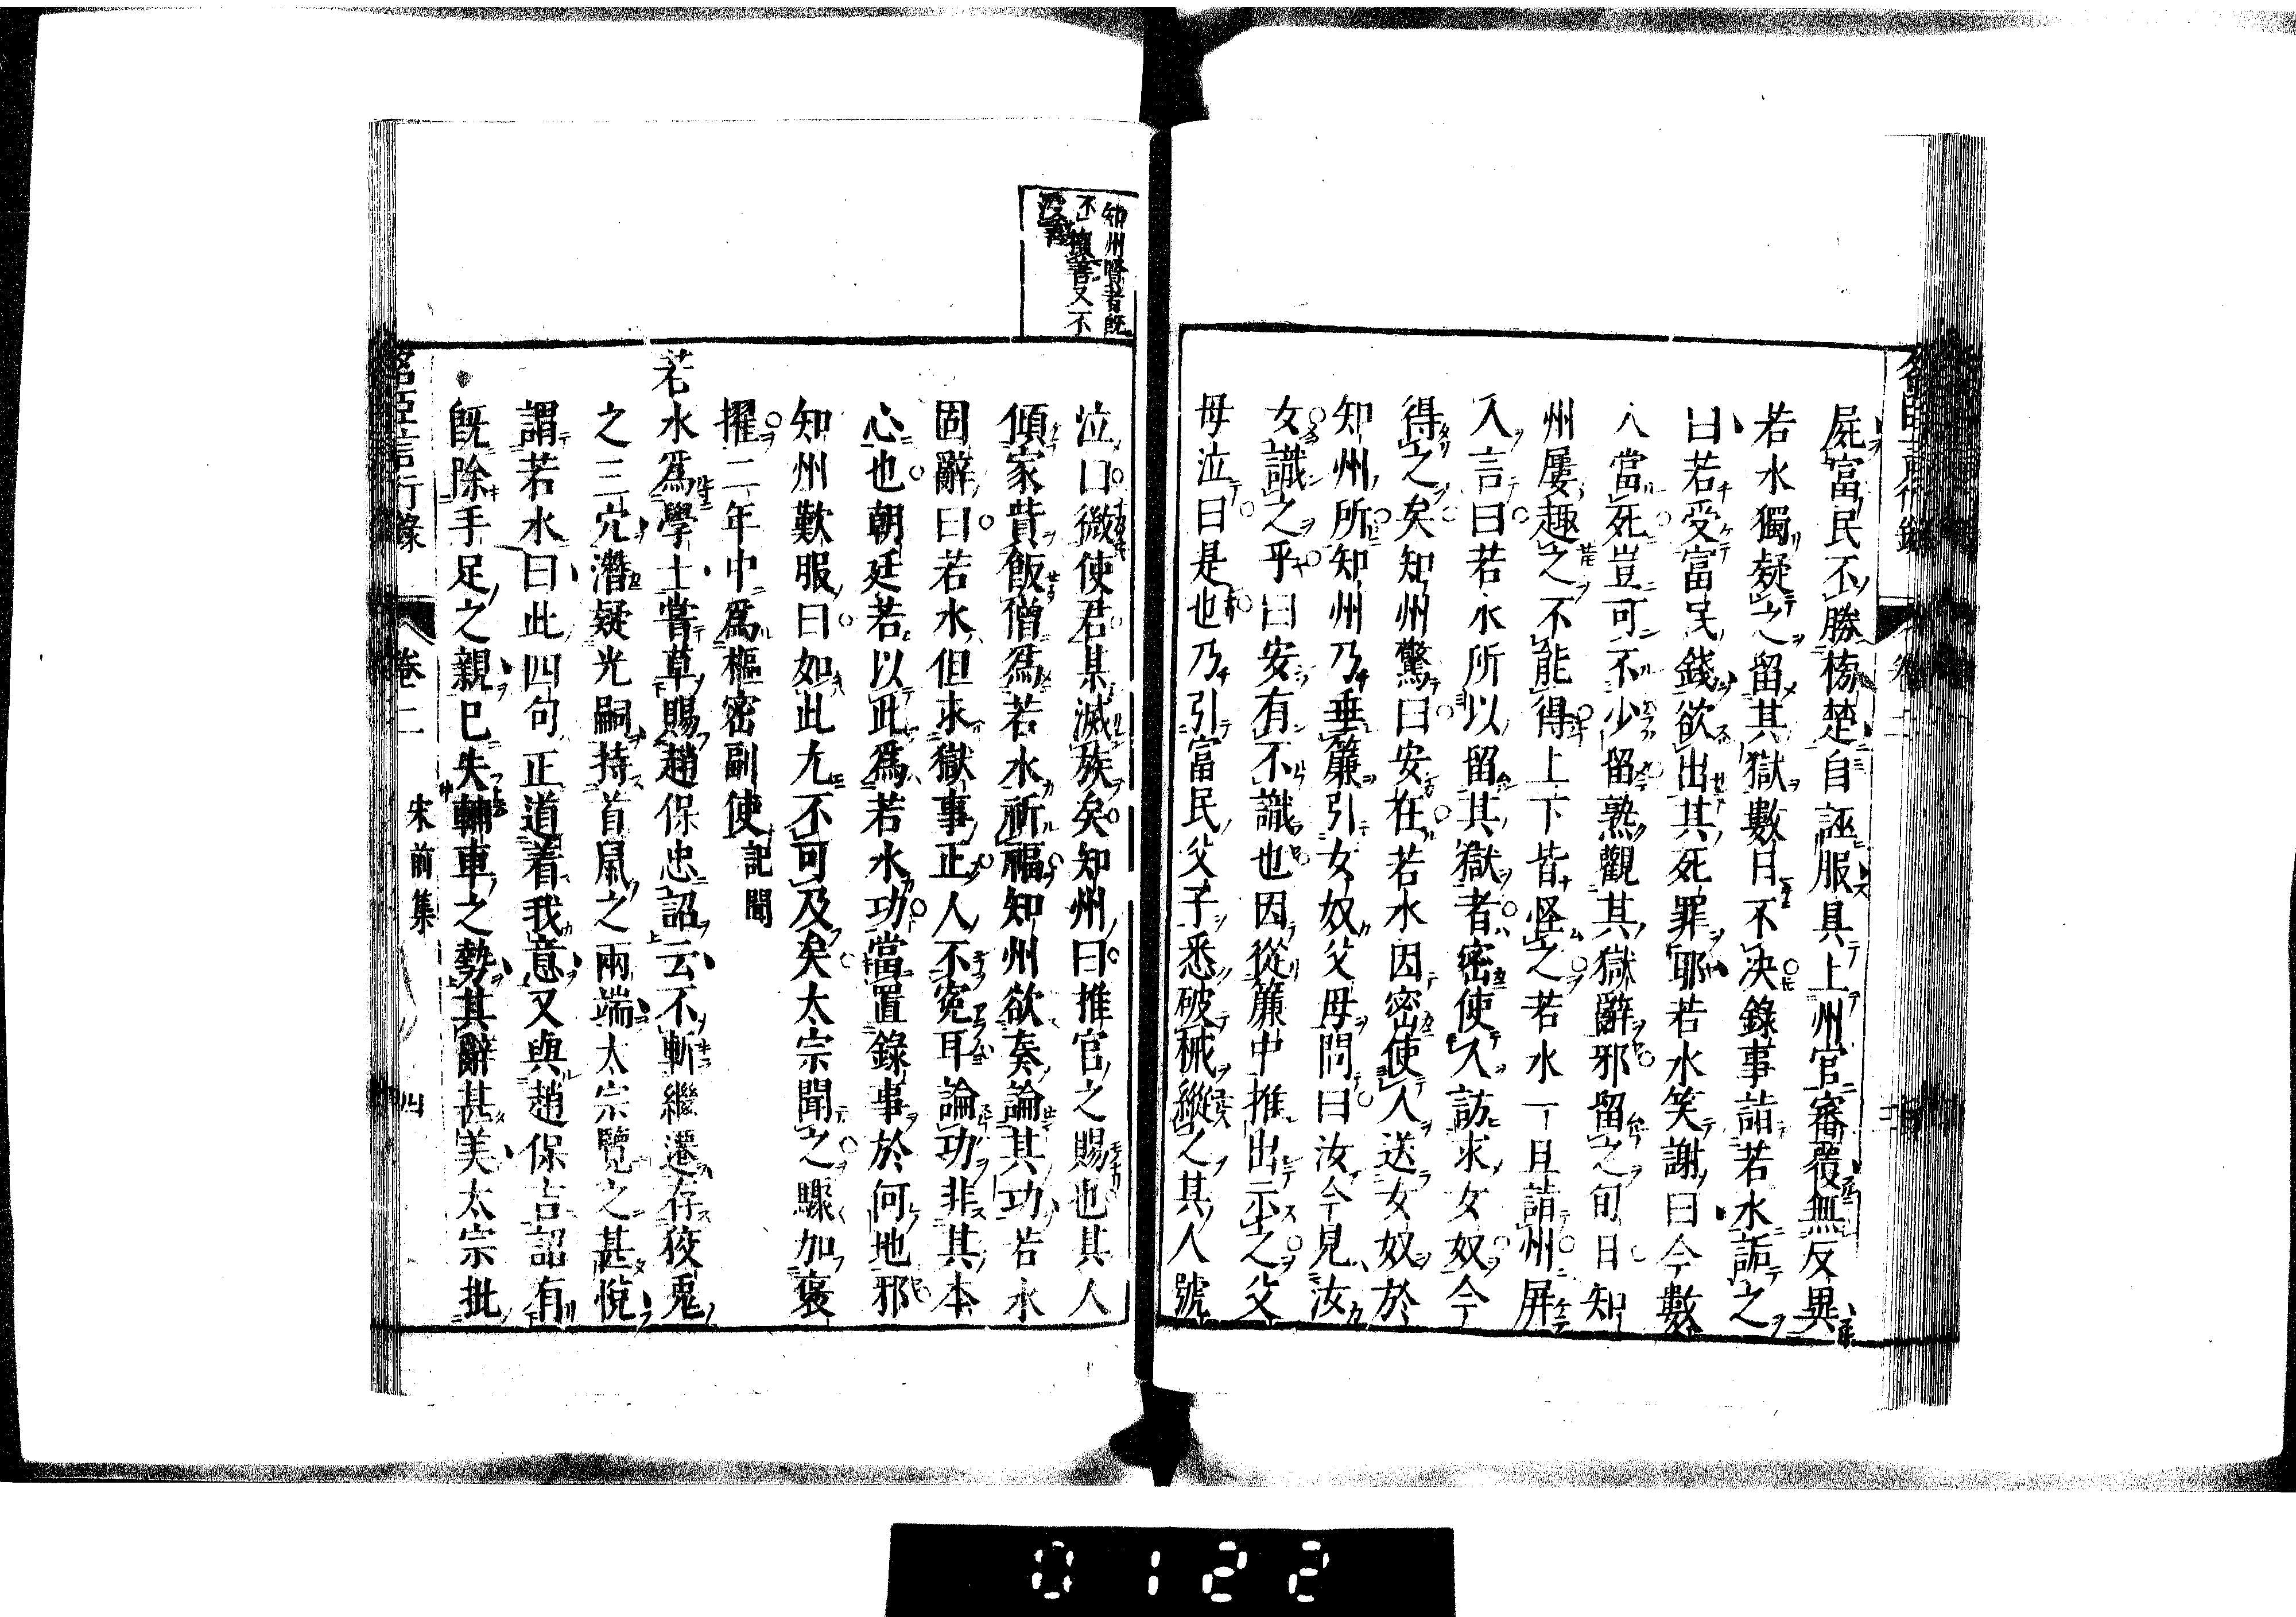 屍富民不勝榜楚自誣服具上州官審覆無反異
若水獨疑之留其獄數日不决錄事詣若水詬之
曰若受富民錢欲出其死罪耶若水笑謝曰今數
人當死豈可不少留熟觀其獄辭邪留之旬日知
州屢趣之不能得上下皆怪之若水一旦詣州屏
人言曰若水所以留其獄者密使人訪求女奴今
得之矣知州驚曰安在若水因密使人送女奴於
知州所知州乃垂簾引女奴父母問曰汝今見汝
女識之乎曰安有不識也因從簾中推出示之父
母泣曰是也乃引富民父子悉破械縱之其人號
知州賢者既
不
善又不
泣曰微使君某滅族矣知州曰推官之賜也其人
傾家貲飯僧爲若水祈福知州欲奏論其功若水
固辭曰若水但求獄事正人不寃耳論功非其本
心也朝廷若以此爲若水功當置錄事於何地邪
知州歎服曰如此尤不可及矣太宗聞之驟加褒
擢二年中爲樞密副使記聞
若水爲學士嘗草賜趙保忠詔云不斬繼遷存狡兎
之三穴潛疑光嗣持首鼠之兩端太宗覽之甚悅
謂若水曰此四句正道着我意又與趙保吉詔有
既除手足之親已失輔車之勢其辭甚美太宗批
名臣言行錄 卷二 宋前集 四
0122